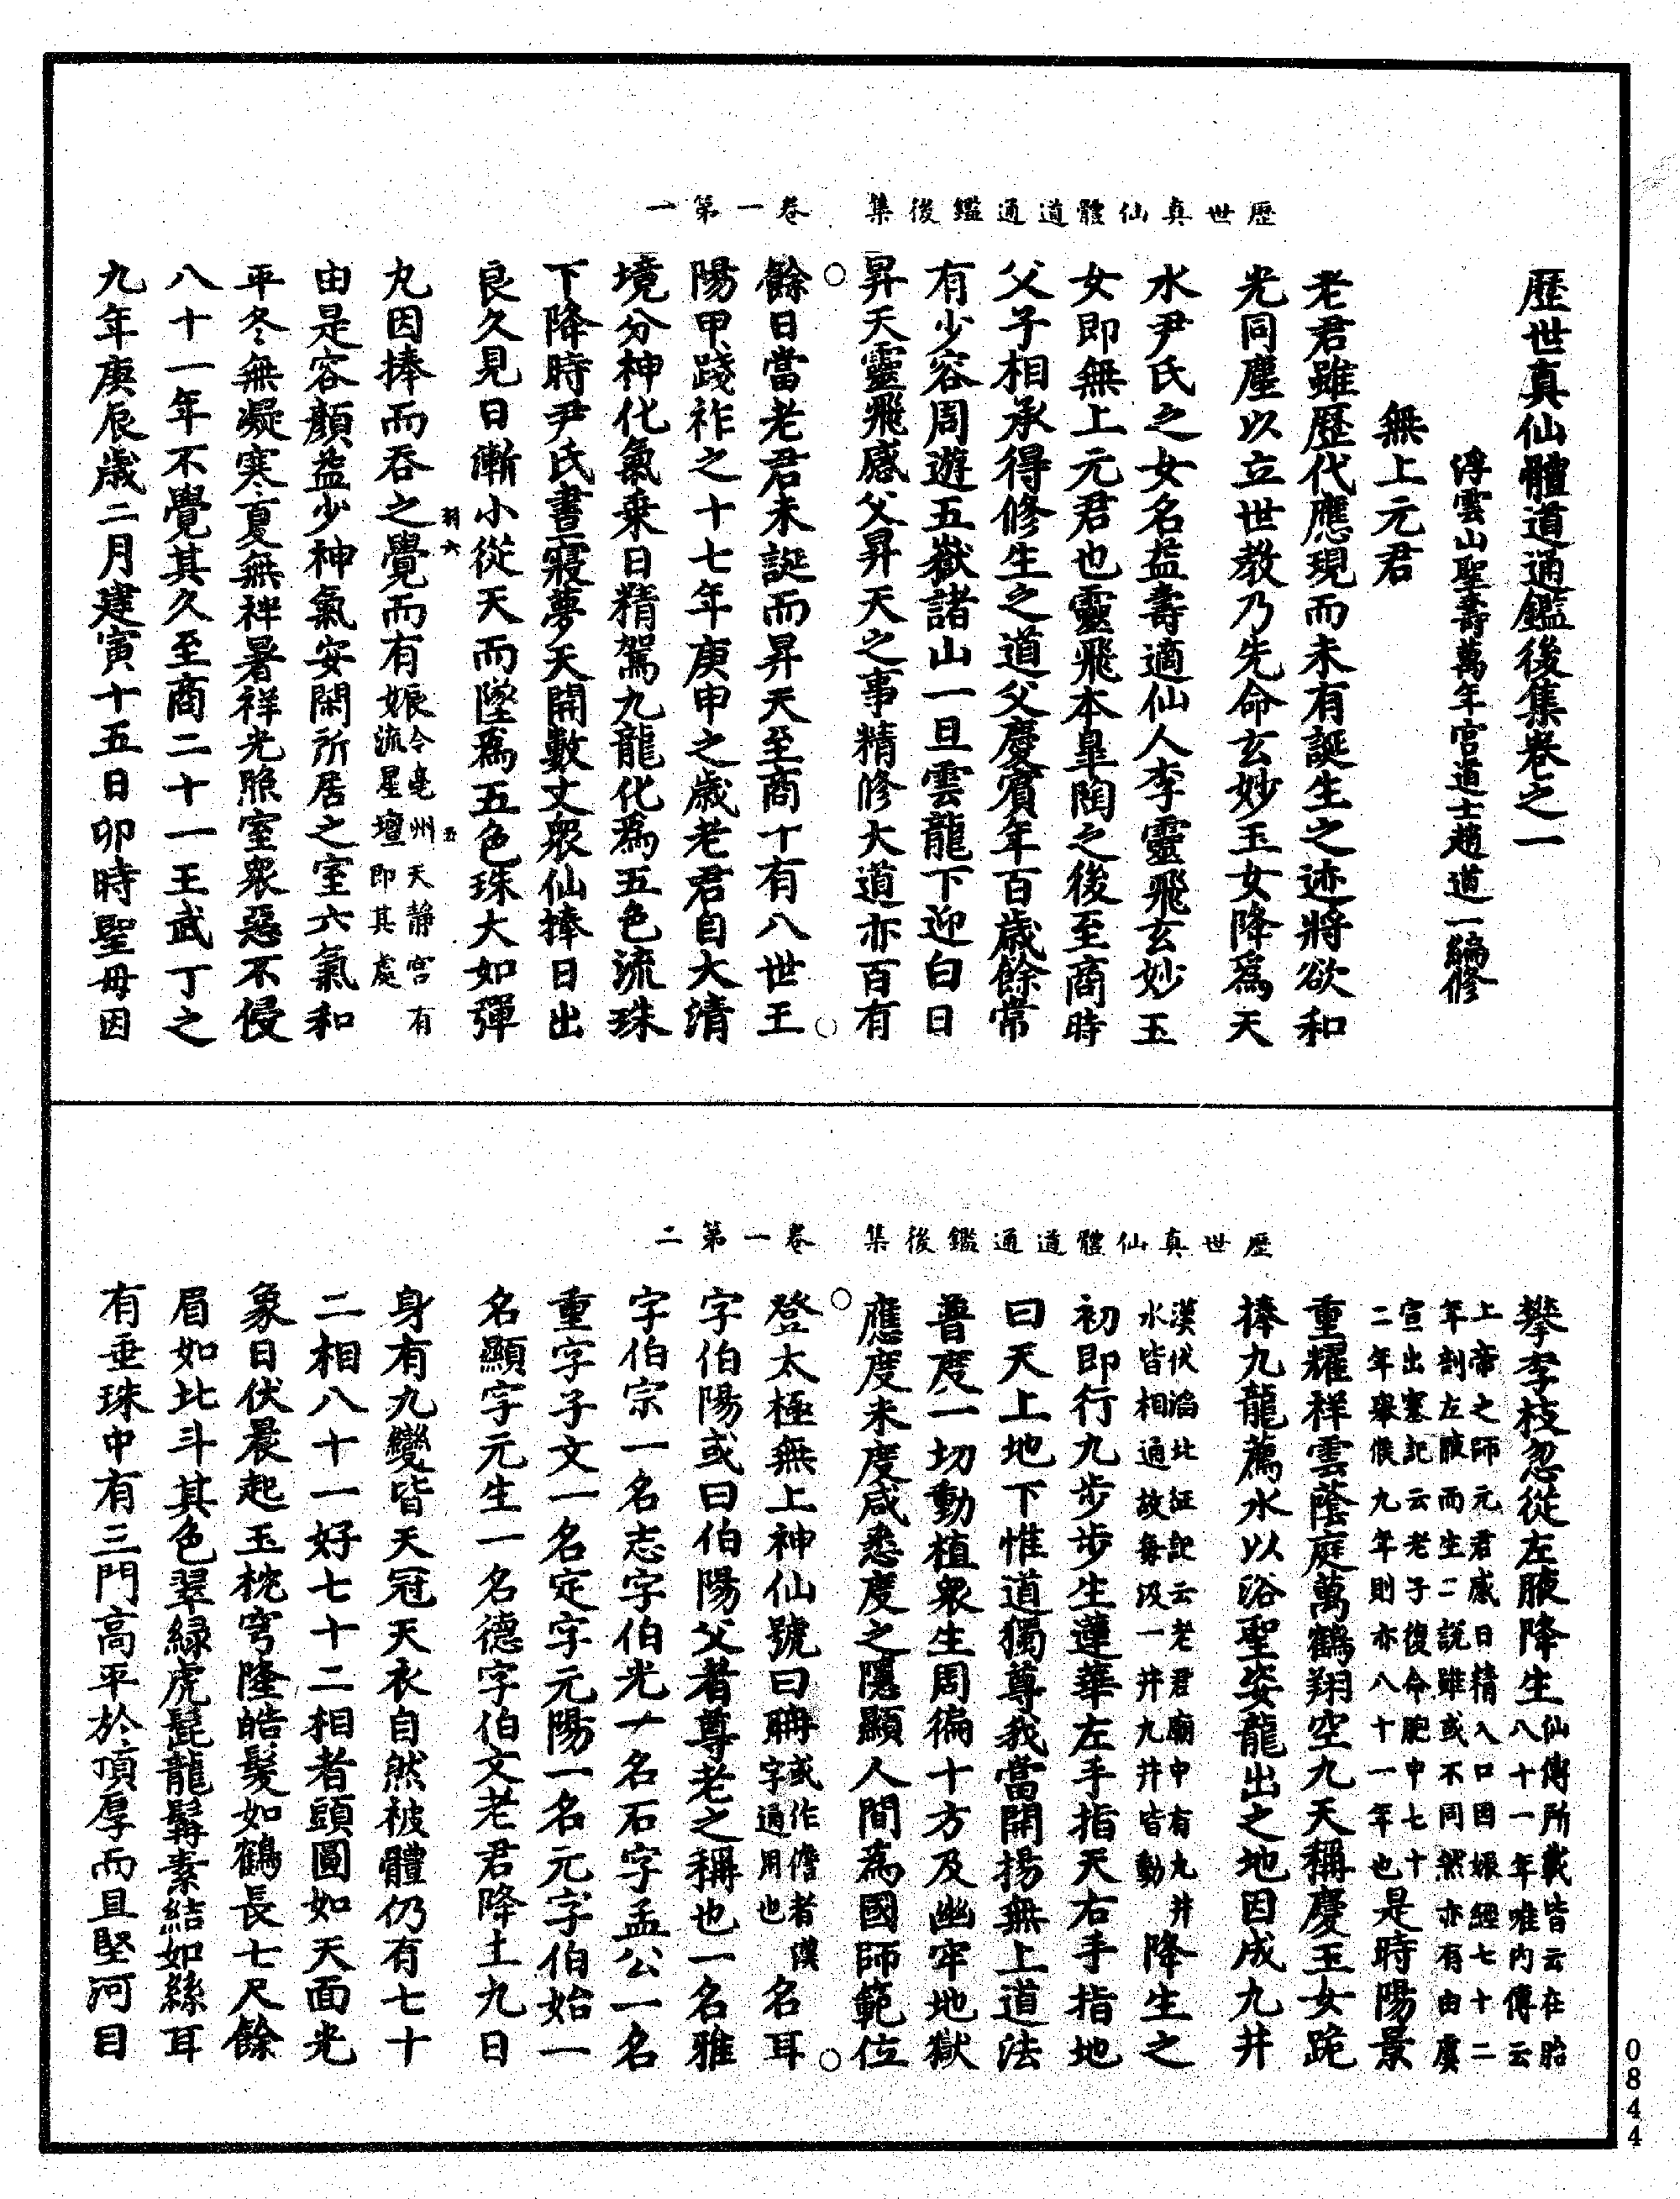 歷世真仙體道通鑑後集 卷一第一
歷世真仙體道通鑑後集卷之一
浮雲山聖壽萬年宮道士趙道一編修
無上元君
老君雖歷代應現而未有誕生之迹將欲和
光同塵以立世教乃先命玄妙玉女降爲天
水尹氏之女名益壽適仙人李靈飛玄妙玉
女即無上元君也靈飛本臯陶之後至商時
父子相承得修生之道父慶賓年百歲餘常
有少容周遊五嶽諸山一旦雲龍下迎白日
昇天靈飛感父昇天之事精修大道亦百有
餘日當老君未誕而昇天至商十有八世王
陽甲踐祚之十七年庚申之歲老君自大清
境分神化氣乗日精駕九龍化爲五色流珠
下降時尹氏晝寢夢天開數丈衆仙捧日出
良久見日漸小從天而墜爲五色珠大如彈
羽六 五
丸因捧而吞之覺而有娠令亳州天靜宮有流星壇即其處
由是容顏益少神氣安閑所居之室六氣和
平冬無凝寒夏無袢暑祥光照室衆惡不侵
八十一年不覺其久至商二十一王武丁之
九年庚辰歲二月建寅十五日卯時聖母因
歷世真仙體道通鑑後集 卷一第二
攀李枝忽從左腋降生仙傳所載皆云在胎八十一年唯內傳云
上帝之師元君感日精入口因娠經七十二年剖左腋而生二說雖或不同然亦有由虞
宣出塞記云老子復命胞中七十二年舉候九年則亦八十一年也是時陽景
重耀祥雲蔭庭萬鶴翔空九天稱慶玉女跪
捧九龍薦水以浴聖姿龍出之地因成九井
漢伏滔北征記云老君廟中有九井水皆相通故每汲一井九井皆動降生之
初即行九步步生蓮華左手指天右手指地
曰天上地下惟道獨尊我當開揚無上道法
普度一切動植衆生周徧十方及幽牢地獄
應度未度咸悉度之隱顯人間爲國師範位
登太極無上神仙號曰聃或作儋者漢字通用也名耳
字伯陽或曰伯陽父者尊老之稱也一名雅
字伯宗一名志字伯光一名石字孟公一名
重字子文一名定字元陽一名元字伯始一
名顯字元生一名德字伯文老君降土九日
身有九變皆天冠天衣自然被體仍有七十
二相八十一好七十二相者頭圓如天面光
象日伏晨起玉枕穹隆皓髮如鶴長七尺餘
眉如北斗其色翠綠虎髭龍髯素結如絲耳
有垂珠中有三門高平於頂厚而且堅河目
0844